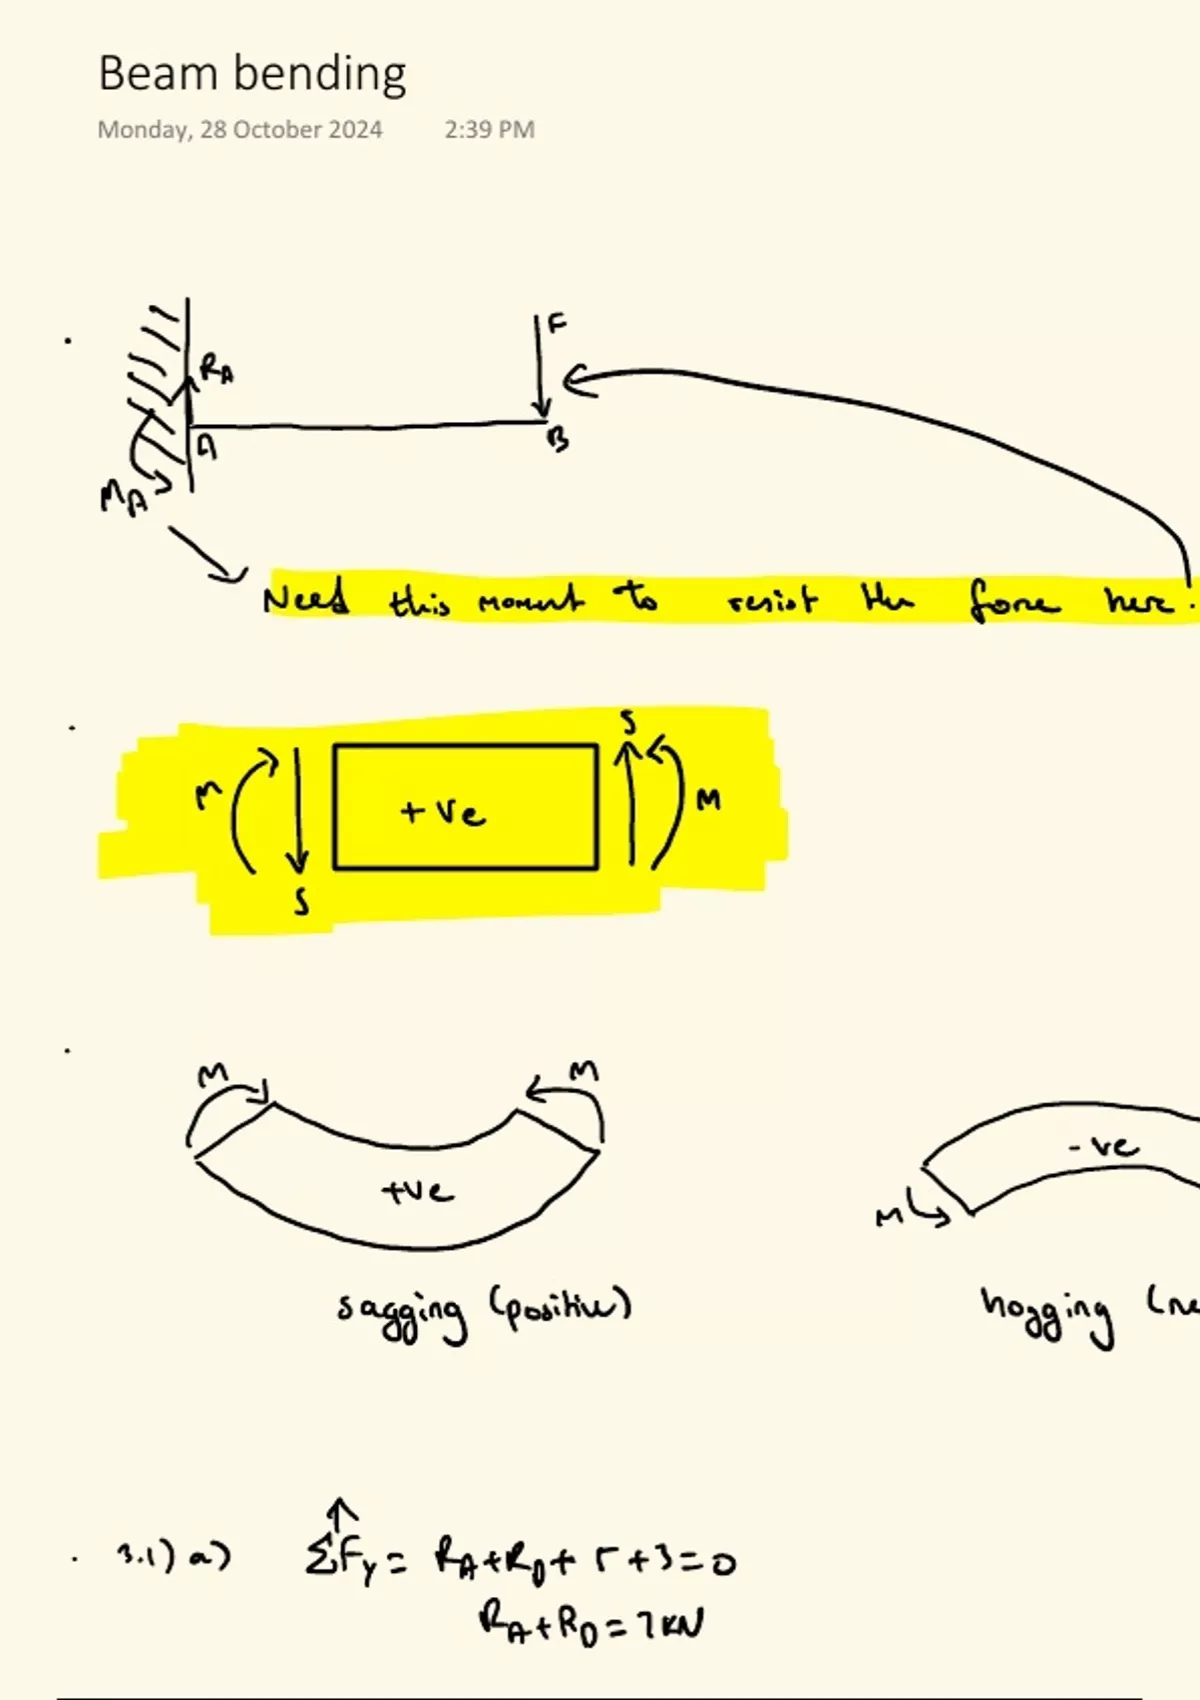 Beam bending
Monday, 28 October 2024 2:39 PM
F
RA
A
B
MA
Need this moment to resist the force here.
S
M
+ve
M
S
M
M
+ve
-ve
M
sagging (positive)
hogging (ne
3.1) a) ΣFy = RA+RD+ 5+3=0
RA+RD=7KN